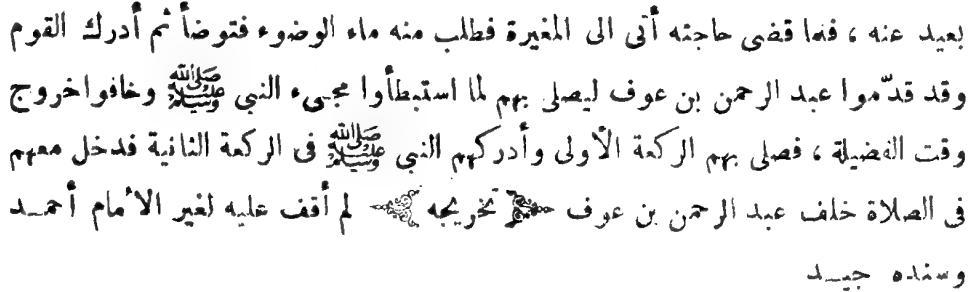 بعيد عنه ، فلما قضى حاجته أتى الى المغيرة فطلب منه ماء الوضوء فتوضأ ثم أدرك القوم
وقد قدّموا عبد الرحمن بن عوف ليصلى بهم لما استبطأوا مجىء النبى ﷺ وخافوا خروج
وقت الفضيلة ، فصلى بهم الركعة الأولى وأدركهم النبى ﷺ فى الركعة الثانية فدخل معهم
فى الصلاة خلف عبد الرحمن بن عوف تخريجه لم أقف عليه لغير الأمام أحمد
وسنده جيد